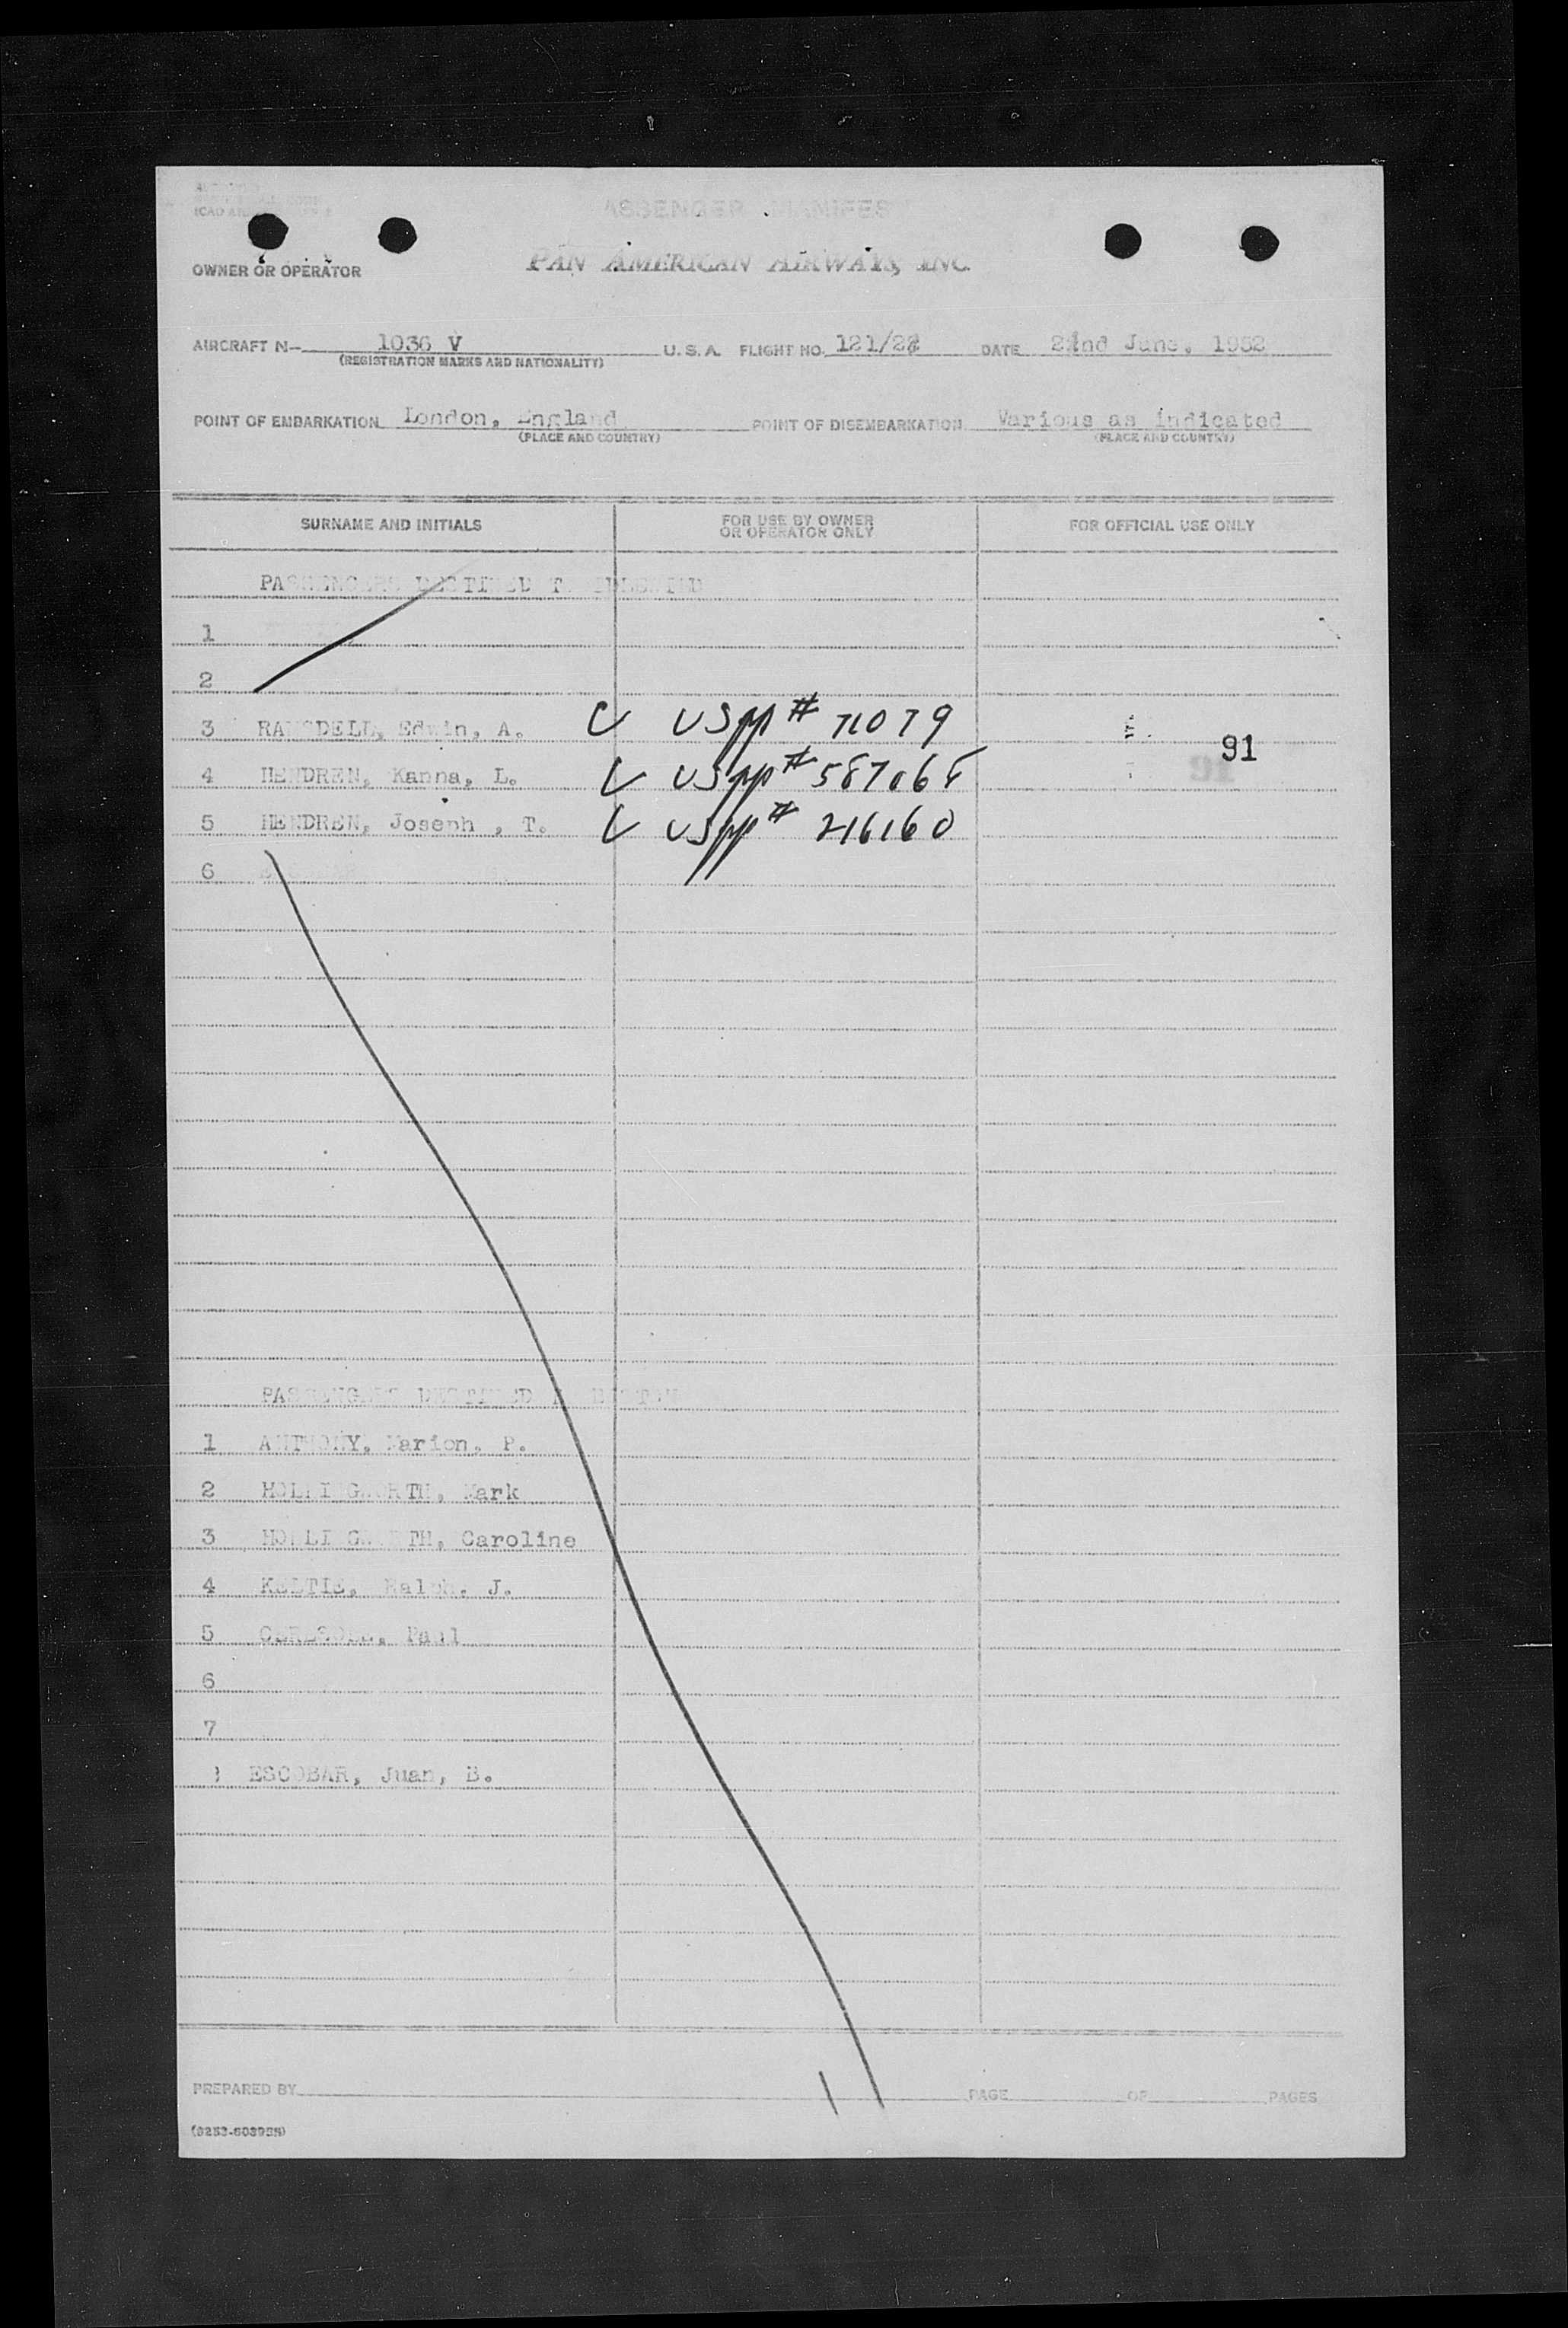 PASSENGER MANIFEST
OWNER OR OPERATOR PAN AMERICAN AIRWAYS, INC.
AIRCRAFT N- 1036 V U. S. A. FLIGHT NO. 121/22 DATE 22nd June, 1952
(REGISTRATION MARKS AND NATIONALITY)
POINT OF EMBARKATION London, England POINT OF DISEMBARKATION Various as indicated
(PLACE AND COUNTRY) (PLACE AND COUNTRY)
SURNAME AND INITIALS FOR USE BY OWNER OR OPERATOR ONLY FOR OFFICIAL USE ONLY
PASSENGERS DESTINED TO IDLEWILD
1
2
3 RAMSDELL, Edwin, A. USpp # 71079
91
4 HENDREN, Kanna, L. USpp # 587068
5 HENDREN, Joseph , T. USpp # 216160
6
PASSENGERS DESTINED TO BOSTON
1 ANTHONY, Marion, P.
2 HOLLINGWORTH, Mark
3 HOLLINGWORTH, Caroline
4 KELTIE, Ralph, J.
5 Paul
6
7
ESCOBAR, Juan, B.
PREPARED BY PAGE OF PAGES